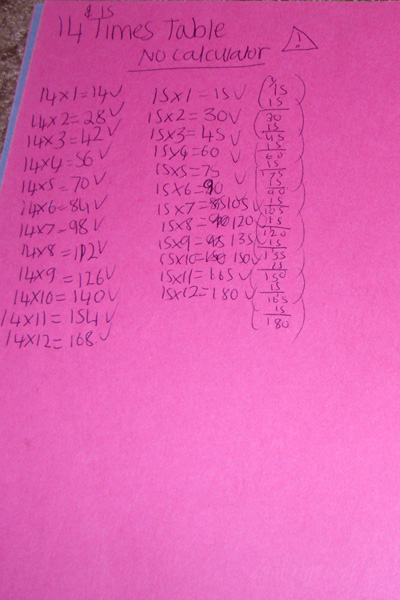 & 15
14 Times Table
No calculator !
14x1=14√
14x2=28√
14x3=42√
14x4=56√
14x5=70√
14x6=84√
14x7=98√
14x8=112√
14x9=126√
14x10=140√
14x11=154√
14x12=168√
15x1=15√
15x2=30√
15x3=45√
15x4=60√
15x5=75√
15x6=90√
15x7=105√
15x8=120√
15x9=135√
15x10=150√
15x11=165√
15x12=180√
15
15
30
15
45
15
60
15
75
15
90
15
105
15
120
15
135
15
150
15
165
15
180